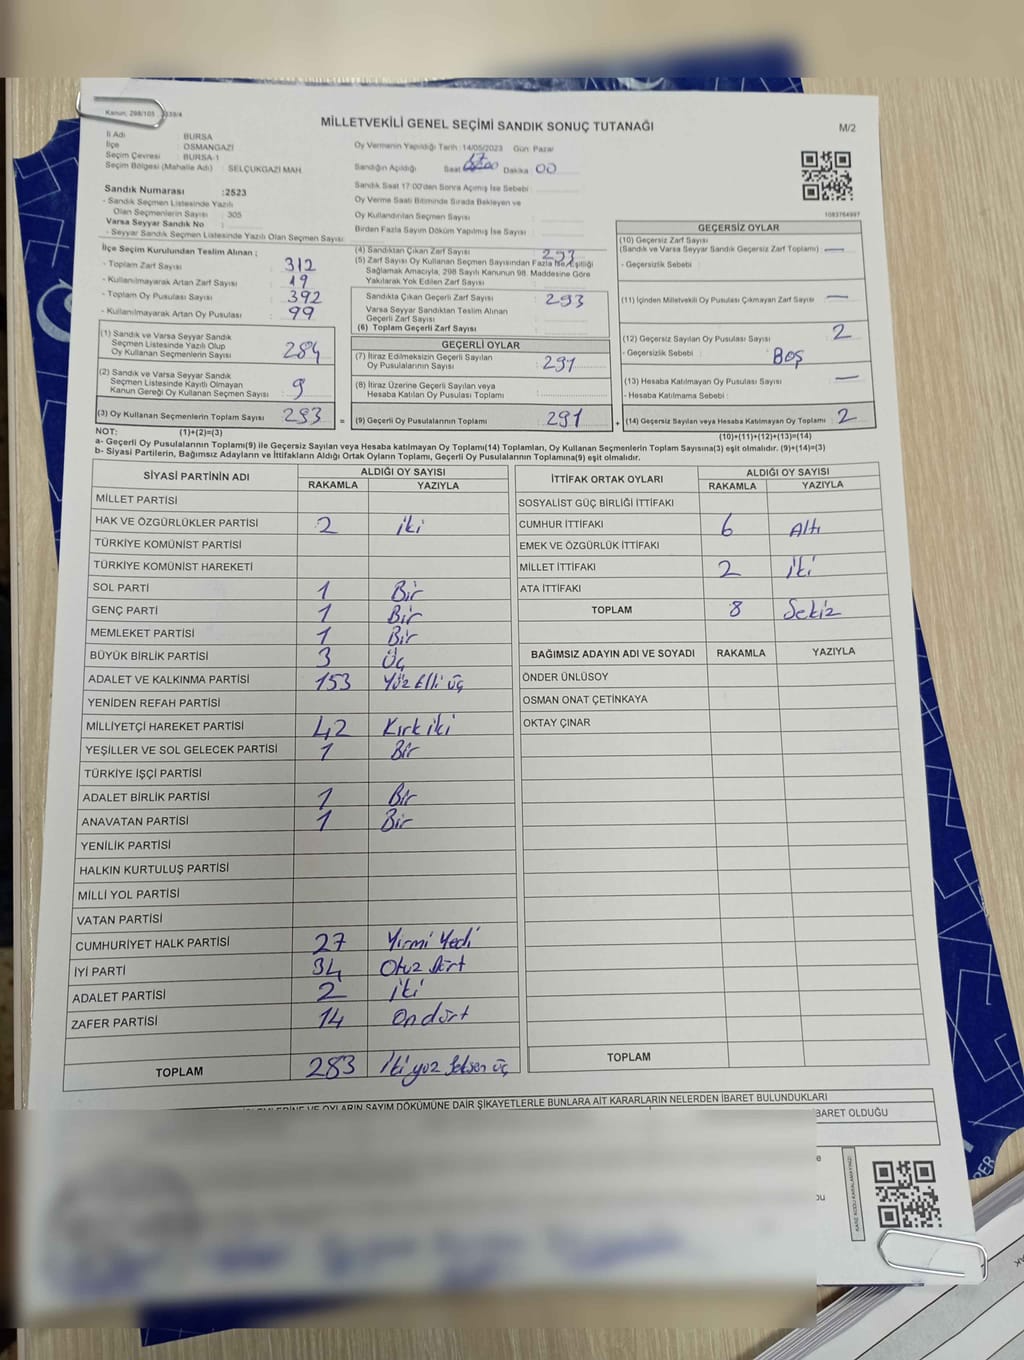 Kanun: 298/105
MİLLETVEKİLİ GENEL SEÇİMİ SANDIK SONUÇ TUTANAĞI
M/2
İl Adı : BURSA
İlçe : OSMANGAZİ
Seçim Çevresi : BURSA-1
Seçim Bölgesi (Mahalle Adı) : SELÇUKGAZİ MAH.
Oy Vermenin Yapıldığı Tarih :14/05/2023 Gün: Pazar
Sandığın Açıldığı Saat 17 Dakika 00
Sandık Saat 17:00'den Sonra Açımış İse Sebebi :
Oy Verme Saati Bitiminde Sırada Bekleyen ve
Oy Kullandırılan Seçmen Sayısı :
Birden Fazla Sayım Döküm Yapılmış İse Sayısı :
1083764997
Sandık Numarası :2523
- Sandık Seçmen Listesinde Yazılı
Olan Seçmenlerin Sayısı : 305
Varsa Seyyar Sandık No :
- Seyyar Sandık Seçmen Listesinde Yazılı Olan Seçmen Sayısı:
İlçe Seçim Kurulundan Teslim Alınan ;
- Toplam Zarf Sayısı : 312
- Kullanılmayarak Artan Zarf Sayısı : 19
- Toplam Oy Pusulası Sayısı : 392
- Kullanılmayarak Artan Oy Pusulası : 99
(1) Sandık ve Varsa Seyyar Sandık
Seçmen Listesinde Yazılı Olup
Oy Kullanan Seçmenlerin Sayısı : 284
(2) Sandık ve Varsa Seyyar Sandık
Seçmen Listesinde Kayıtlı Olmayan
Kanun Gereği Oy Kullanan Seçmen Sayısı : 9
(3) Oy Kullanan Seçmenlerin Toplam Sayısı : 293
(4) Sandıktan Çıkan Zarf Sayısı : 293
(5) Zarf Sayısı Oy Kullanan Seçmen Sayısından Fazla İse, Eşitliği
Sağlamak Amacıyla, 298 Sayılı Kanunun 98. Maddesine Göre
Yakılarak Yok Edilen Zarf Sayısı :
Sandıkta Çıkan Geçerli Zarf Sayısı : 293
Varsa Seyyar Sandıktan Teslim Alınan
Geçerli Zarf Sayısı :
(6) Toplam Geçerli Zarf Sayısı :
GEÇERLİ OYLAR
(7) İtiraz Edilmeksizin Geçerli Sayılan
Oy Pusulasının Sayısı : 291
(8) İtiraz Üzerine Geçerli Sayılan veya
Hesaba Katılan Oy Pusulası Toplamı :
= (9) Geçerli Oy Pusulalarının Toplamı : 291
GEÇERSİZ OYLAR
(10) Geçersiz Zarf Sayısı
(Sandık ve Varsa Seyyar Sandık Geçersiz Zarf Toplamı) : —
- Geçersizlik Sebebi :
(11) İçinden Milletvekili Oy Pusulası Çıkmayan Zarf Sayısı : —
(12) Geçersiz Sayılan Oy Pusulası Sayısı : 2
- Geçersizlik Sebebi : Boş
(13) Hesaba Katılmayan Oy Pusulası Sayısı : —
- Hesaba Katılmama Sebebi :
+ (14) Geçersiz Sayılan veya Hesaba Katılmayan Oy Toplamı : 2
NOT: (1)+(2)=(3)
(10)+(11)+(12)+(13)=(14)
a- Geçerli Oy Pusulalarının Toplamı(9) ile Geçersiz Sayılan veya Hesaba katılmayan Oy Toplamı(14) Toplamları, Oy Kullanan Seçmenlerin Toplam Sayısına(3) eşit olmalıdır. (9)+(14)=(3)
b- Siyasi Partilerin, Bağımsız Adayların ve İttifakların Aldığı Ortak Oyların Toplamı, Geçerli Oy Pusulalarının Toplamına(9) eşit olmalıdır.
SİYASİ PARTİNİN ADI ALDIĞI OY SAYISI
RAKAMLA YAZIYLA
MİLLET PARTİSİ
HAK VE ÖZGÜRLÜKLER PARTİSİ 2 iki
TÜRKİYE KOMÜNİST PARTİSİ
TÜRKİYE KOMÜNİST HAREKETİ
SOL PARTİ 1 Bir
GENÇ PARTİ 1 Bir
MEMLEKET PARTİSİ 1 Bir
BÜYÜK BİRLİK PARTİSİ 3 Üç
ADALET VE KALKINMA PARTİSİ 153 Yüz Elli üç
YENİDEN REFAH PARTİSİ
MİLLİYETÇİ HAREKET PARTİSİ 42 Kırk iki
YEŞİLLER VE SOL GELECEK PARTİSİ 1 Bir
TÜRKİYE İŞÇİ PARTİSİ
ADALET BİRLİK PARTİSİ 1 Bir
ANAVATAN PARTİSİ 1 Bir
YENİLİK PARTİSİ
HALKIN KURTULUŞ PARTİSİ
MİLLİ YOL PARTİSİ
VATAN PARTİSİ
CUMHURİYET HALK PARTİSİ 27 Yirmi Yedi
İYİ PARTİ 34 Otuz Dört
ADALET PARTİSİ 2 iki
ZAFER PARTİSİ 14 On dört
TOPLAM 283 İki yüz Seksen üç
İTTİFAK ORTAK OYLARI ALDIĞI OY SAYISI
RAKAMLA YAZIYLA
SOSYALİST GÜÇ BİRLİĞİ İTTİFAKI
CUMHUR İTTİFAKI 6 Altı
EMEK VE ÖZGÜRLÜK İTTİFAKI
MİLLET İTTİFAKI 2 İki
ATA İTTİFAKI
TOPLAM 8 Sekiz
BAĞIMSIZ ADAYIN ADI VE SOYADI RAKAMLA YAZIYLA
ÖNDER ÜNLÜSOY
OSMAN ONAT ÇETİNKAYA
OKTAY ÇINAR
TOPLAM
VE OYLARIN SAYIM DÖKÜMÜNE DAİR ŞİKAYETLERLE BUNLARA AİT KARARLARIN NELERDEN İBARET BULUNDUKLARI
BARET OLDUĞU
KARE KODU KARALAMAYINIZ!